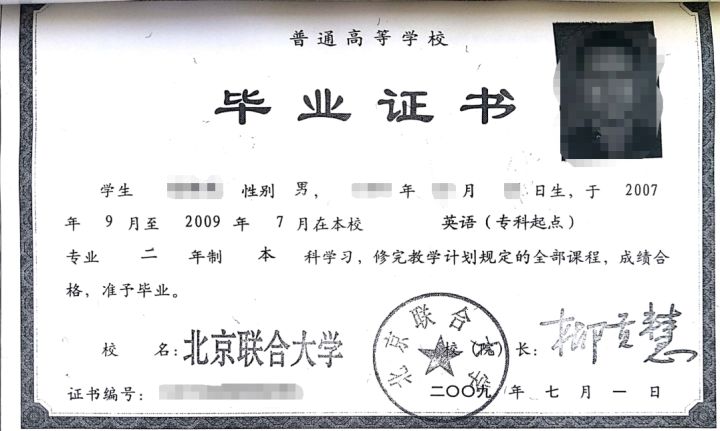 普通高等学校
毕业证书
学生 性别 男， 年 月 日生，于 2007
年 9 月至 2009 年 7 月在本校 英语（专科起点）
专业 二 年制 本 科学习，修完教学计划规定的全部课程，成绩合
格，准予毕业。
校 名：北京联合大学 校（院）长：柳贡慧
北京联合大学
证书编号： 二〇〇九 年 七 月 一 日